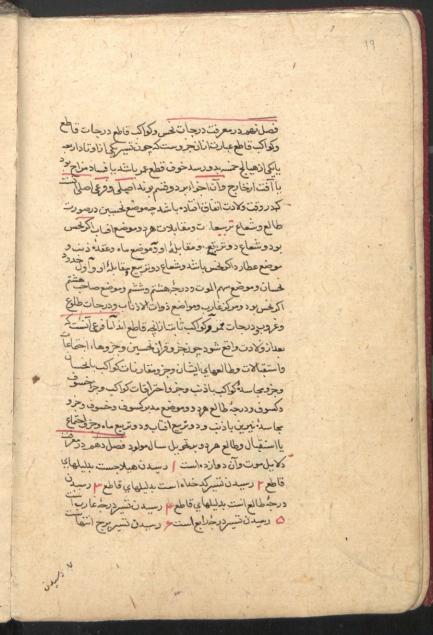 19
فصل نهم در معرفت درجات نحس و کواکب قاطع درجات قاطع
و کواکب قاطع عبارت از ان جزوست که چون تسیر یکی از اوتاد اربعه
یا یکی از هیالج خمسه بدو رسد خوف قطع عمر باشد یا فساد مزاج بود
یا آفت از خارج و آن اجزا بر دو قسم بوند اصلی و فرعی اصلی آنست
که در وقت ولادت اتفاق افتاده باشد چه موضع نحسین در صورت
طالع و شعاع تربیعات و مقابلات هر دو موضع افتاب اکر نحس
بود و شعاع دو تربیع و مقابله او و موضع ماه و عقده ذنب و
موضع عطارد اکر نحس باشد و شعاع دو تربیع و مقابله او و اول حدود
نحسان و موضع سهم الموت و درجهٔ هشتم و ششم و موضع صاحب هشتم
اکر نحس بود و مرکز غارب و مواضع ذوات الاذناب و درجات طلوع
و غروب و درجات ممر و کواکب ثابتان انچه قاطع اند اما فرعی آنست که
بعد از ولادت واقع شود چون جزو قران نحسین و جزوهاء اجتماعات
و استقبالات و طالعهای ایشان و جزو مقارنات کواکب با نحسان
و جزو مجاسدهٔ کواکب با ذنب و جزو احتراقات کواکب و جزو خسوف
و کسوف و درجهٔ طالع هر دو و موضع مدبر کسوف و خسوف و جزو
مجاسدهٔ نیرین با ذنب و دو تربیع افتاب و دو تربیع ماه و جزو اجتماع
یا استقبال و طالع هر دو بتحویل سال مولود فصل دهم در معرفت
دلایل موت و آن دوازده است ۱ رسیدن هیلاجست بدلیلهای
قاطع ۲ رسیدن تسیر کدخداه است بدلیلهای قاطع ۳ رسیدن
درجهٔ طالع است بدلیلهای قاطع ۴ رسیدن تسیر درجهٔ غارب است
۵ رسیدن تسیر درجهٔ رابع است ۶ رسیدن تسیر برج انتهاست
۷ رسیدن